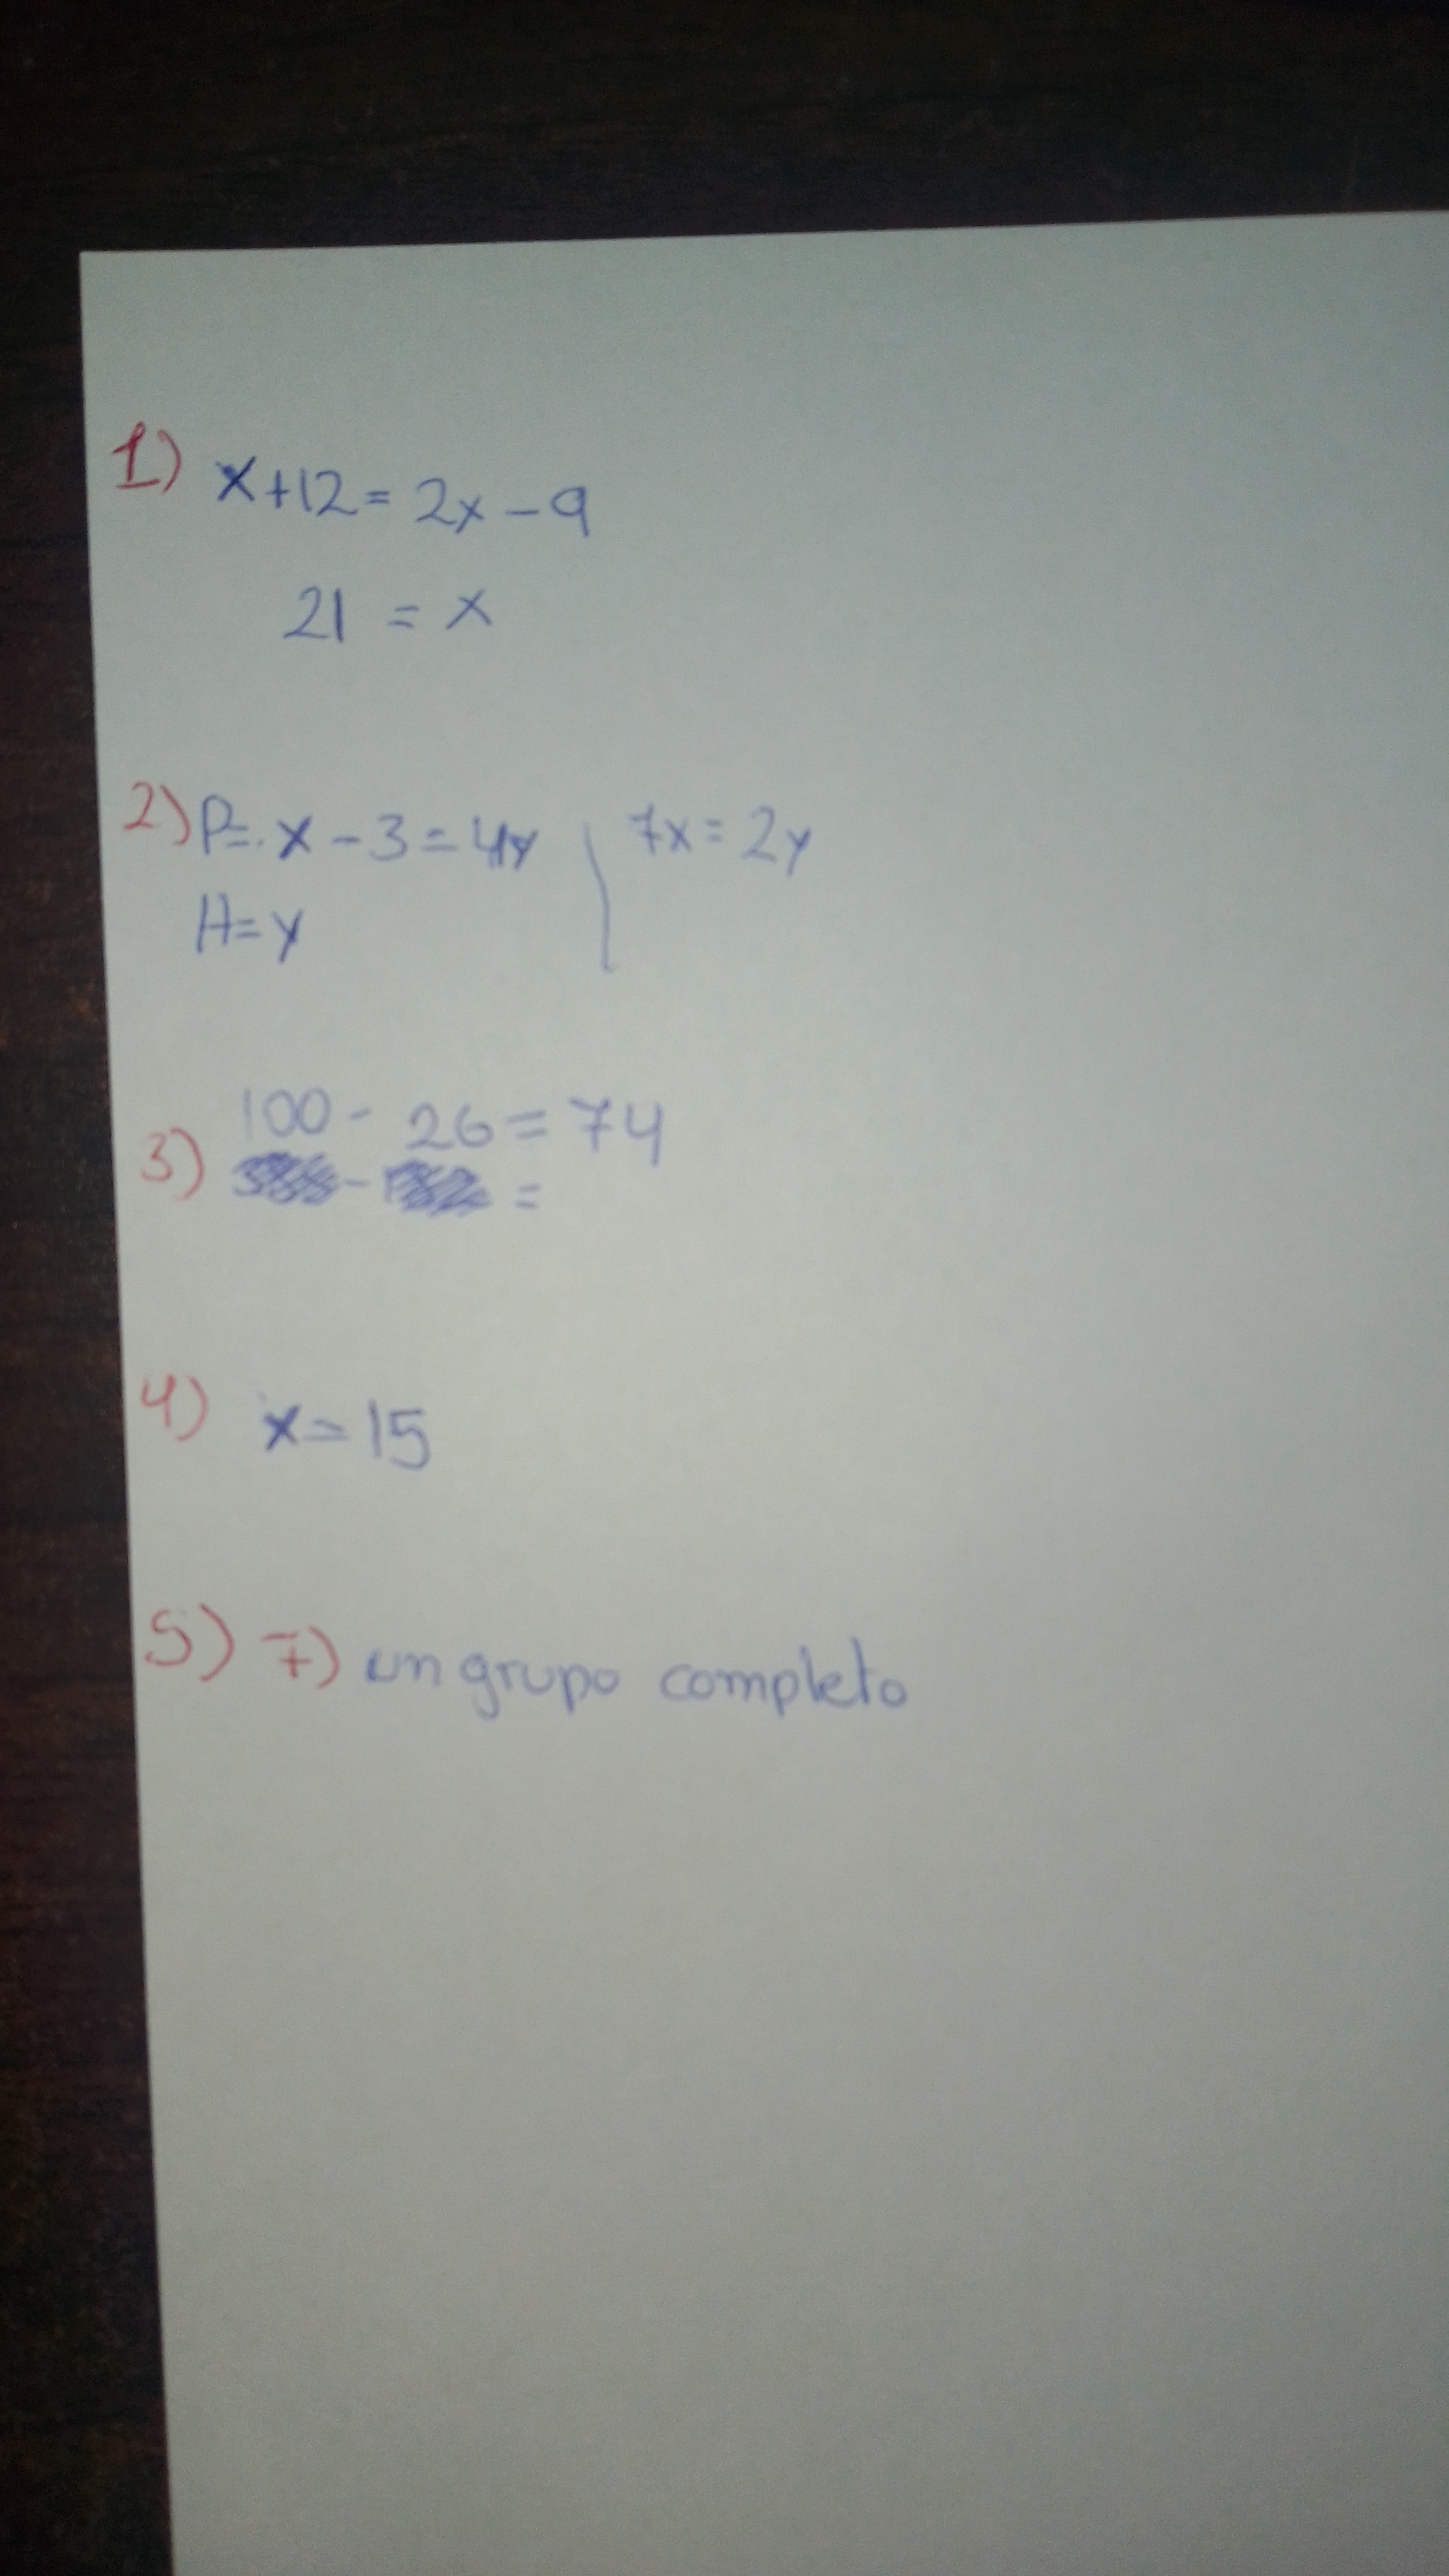 1) x+12=2x-9
21 = x
2) P= x-3=4y 7x=2y
H=y
100- 26=74
3) - =
4) x=15
5) 7) un grupo completo